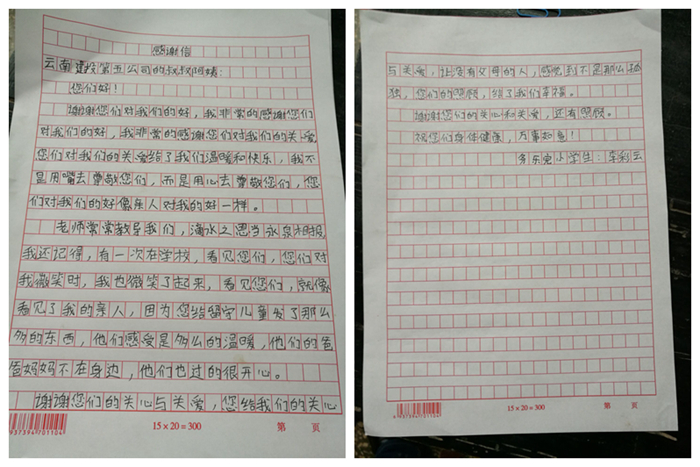 感谢信
云南建投第五公司的叔叔阿姨：
您们好！
谢谢您们对我们的好，我非常的感谢您们
对我们的好，我非常的感谢您们对我们的关爱，
您们对我们的关爱给了我们温暖和快乐，我不
是用嘴去尊敬您们，而是用心去尊敬您们，您
们对我们的好像亲人对我的好一样。
老师常常教导我们，滴水之恩当永泉相报，
我还记得，有一次在学校，看见您们，您们对
我微笑时，我也微笑了起来，看见您们，就像
看见了我的亲人，因为您给留守儿童发了那么
多的东西，他们感受是多么的温暖，他们的爸
爸妈妈不在身边，他们也过的很开心。
谢谢您们的关心与关爱，您给我们的关心
15×20=300
第 页
6937394701104
与关爱，让没有父母的人，感觉到不是那么孤
独，您们的照顾，给了我们幸福。
谢谢您们的关心和关爱，还有照顾。
祝您们身体健康，万事如意！
多乐完小学生：李彩云
15×20=300
第 页